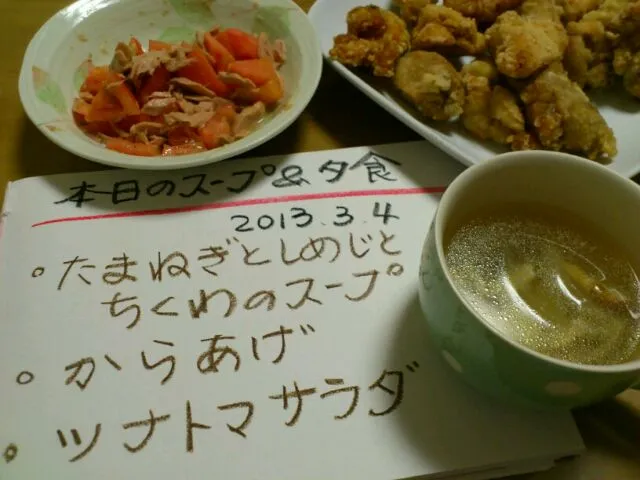 本日のスープ&夕食
2013.3.4
。たまねぎとしめじと
ちくわのスープ
。からあげ
。ツナトマサラダ